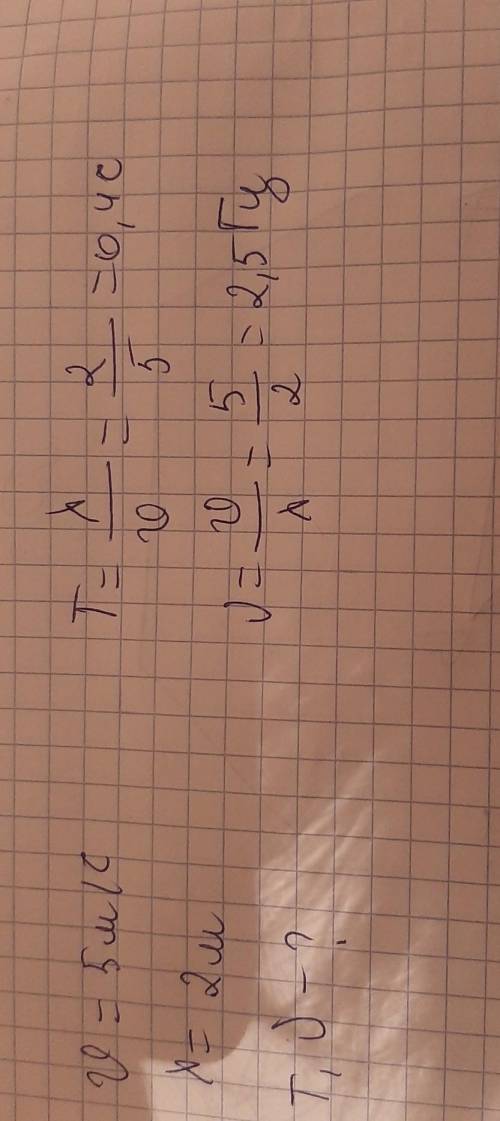 υ = 5 м/с
λ = 2 м
T, ν – ?
T = λ/υ = 2/5 = 0,4 с
ν = υ/λ = 5/2 = 2,5 Гц